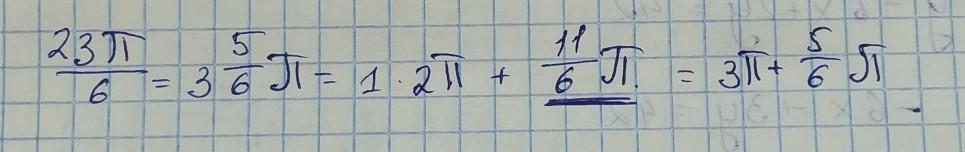 23π/6 = 3 5/6 π = 1 · 2π + 11/6 π = 3π + 5/6 π